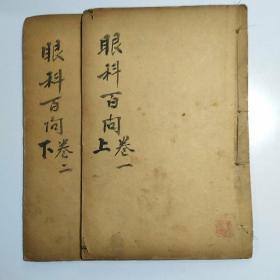 眼科百问
上卷一
眼科百问
下卷二